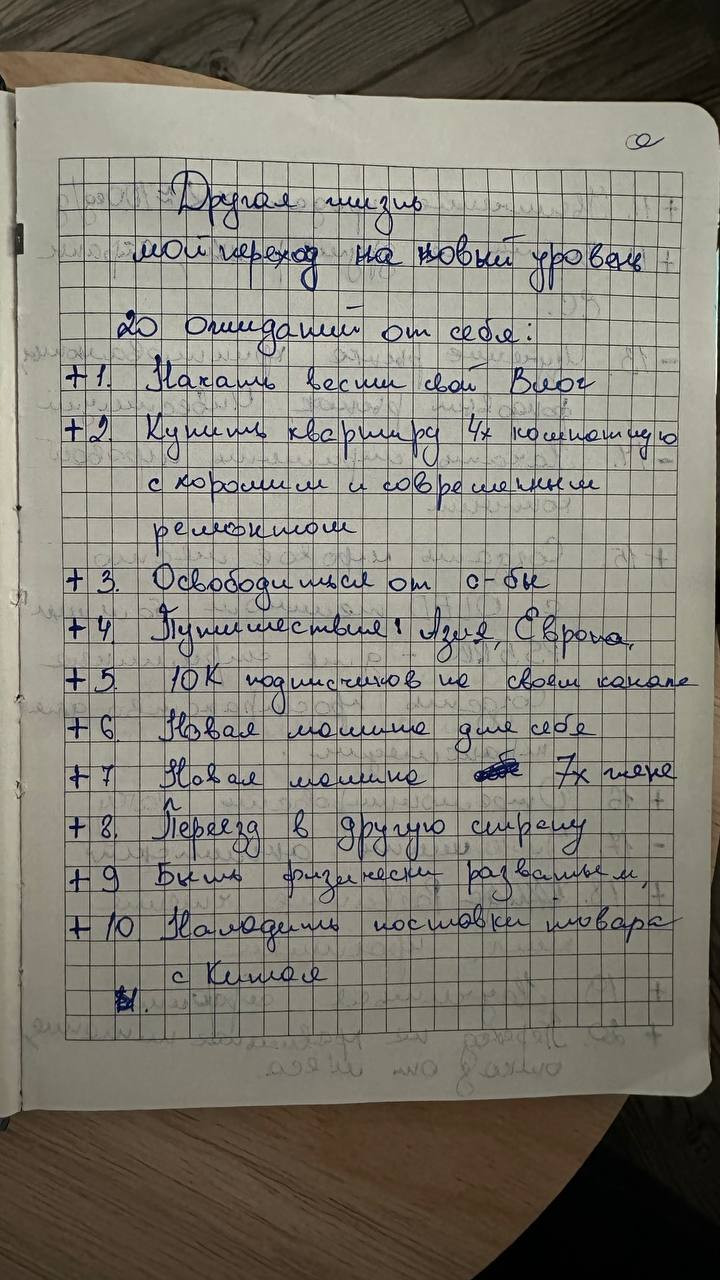 Другая жизнь
мой переход на новый уровень
20 ожиданий от себя:
+ 1. Начать вести свой Влог
+ 2. Купить квартиру 4х комнатную
с хорошим и современным
ремонтом
+ 3. Освободиться от с-бы
+ 4. Путишествия: Азия, Европа,
+ 5. 10К подписчиков на своем канале
+ 6 Новая машина для себя
+ 7 Новая машина 7х жене
+ 8. Переезд в другую страну
+ 9 Быть физически развитым,
+ 10 Наладить поставки товара
с Китая